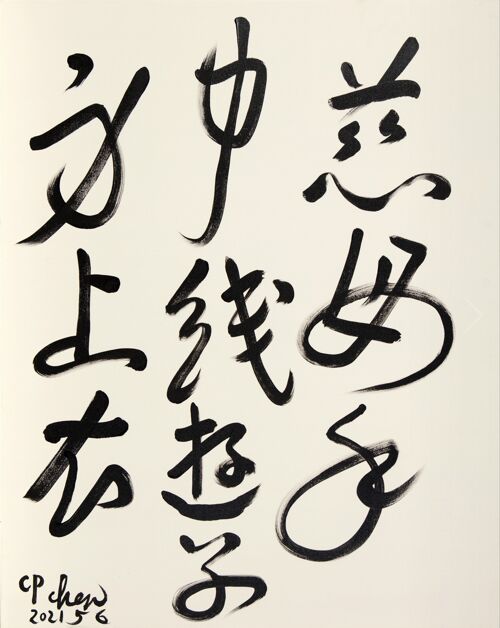 慈母手
中线遊子
身上衣
CP chen
2021 5 6